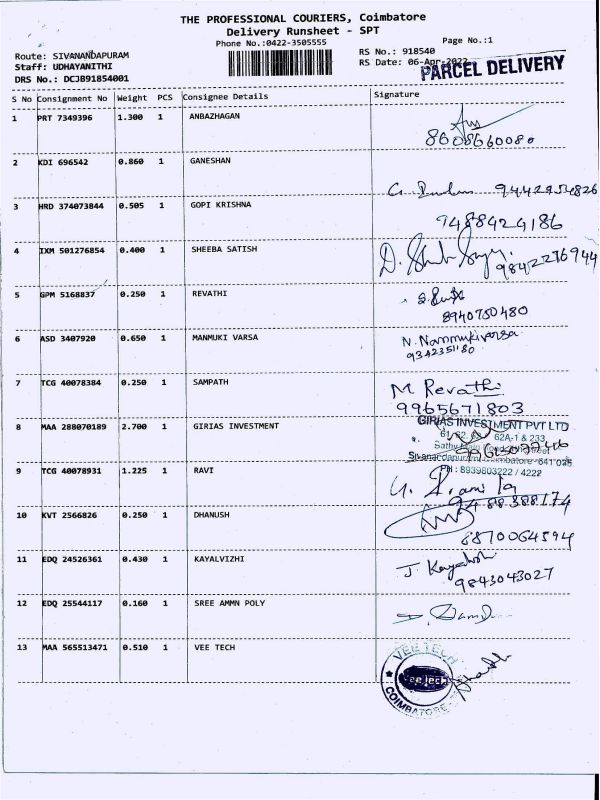 THE PROFESSIONAL COURIERS, Coimbatore
Delivery Runsheet - SPT
Phone No.:0422-3505555
Page No.:1
Route: SIVANANDAPURAM
RS No.: 918540
Staff: UDHAYANITHI
RS Date: 06-Apr-2022
PARCEL DELIVERY
DRS No.: DCJB91854001
S No Consignment No Weight PCS Consignee Details Signature
1 PRT 7349396 1.300 1 ANBAZHAGAN
8608660080
2 KDI 696542 0.860 1 GANESHAN
9442954826
3 HRD 374073844 0.505 1 GOPI KRISHNA
9488424186
4 IXM 501276854 0.400 1 SHEEBA SATISH
9842276944
5 GPM 5168837 0.250 1 REVATHI
8940750480
6 ASD 3407920 0.650 1 MANMUKI VARSA
N. Nanmukivarsa
9342351180
7 TCG 40078384 0.250 1 SAMPATH
M Revathi
9965671803
8 MAA 288070189 2.700 1 GIRIAS INVESTMENT
GIRIAS INVESTMENT PVT LTD
62A-1 & 233
Coimbatore -641 035
PH : 8939803222 / 4222
9 TCG 40078931 1.225 1 RAVI
9488388174
10 KVT 2566826 0.250 1 DHANUSH
8870064594
11 EDQ 24526361 0.430 1 KAYALVIZHI
J. Kayalvizhi
9843043027
12 EDQ 25544117 0.160 1 SREE AMMN POLY
13 MAA 565513471 0.510 1 VEE TECH
VEE TECH
Vee Tech
COIMBATORE